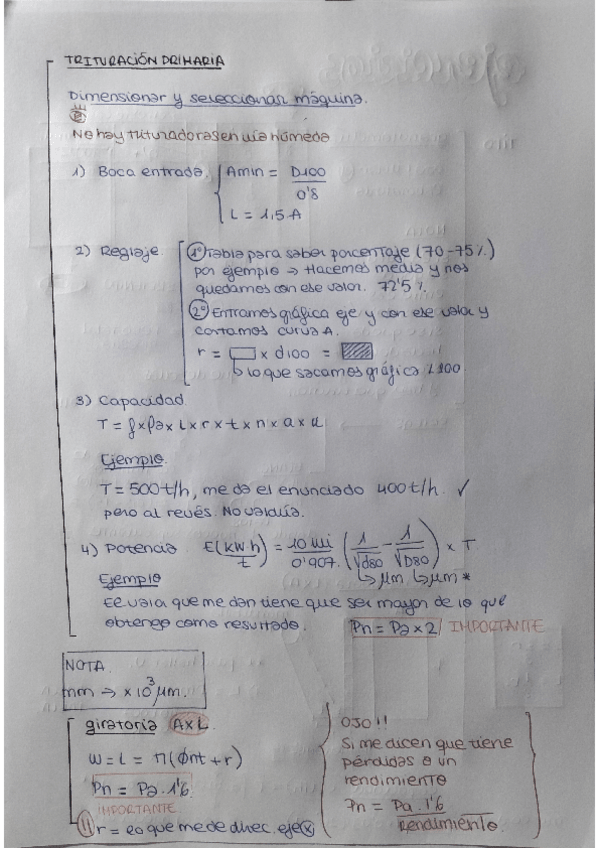 TRITURACIÓN PRIMARIA
Dimensionar y seleccionar máquina.
No hay trituradoras en vía húmeda
1) Boca entrada. Amin = D100 / 0'8
L = 1,5 A
2) Reglaje 1º Tabla para saber porcentaje (70-75%)
por ejemplo → Hacemos media y nos
quedamos con ese valor. 72'5%.
2º Entramos gráfica eje y con ese valor y
cortamos curva A.
r = x d100 =
lo que sacamos gráfica / 100
3) Capacidad
T = f x ρa x L x r x t x n x a x u
Ejemplo.
T = 500 t/h, me da el enunciado 400 t/h. ✓
pero al revés. No valdría.
4) Potencia E(kW·h / t) = 10 wi / 0'907 (1 / √d80 - 1 / √D80) x T
Ejemplo ↳ μm ↳ μm *
El valor que me dan tiene que ser mayor de lo que
obtengo como resultado. Pn = Pa x 2 / IMPORTANTE
NOTA.
mm → x 10³ μm.
giratoria A x L
W = L = π(Φnt + r)
Pn = Pa · 1'6
IMPORTANTE
r = lo que me de direc. eje x
OJO!!
Si me dicen que tiene
pérdidas o un
rendimiento
Pn = Pa · 1'6 / Rendimiento